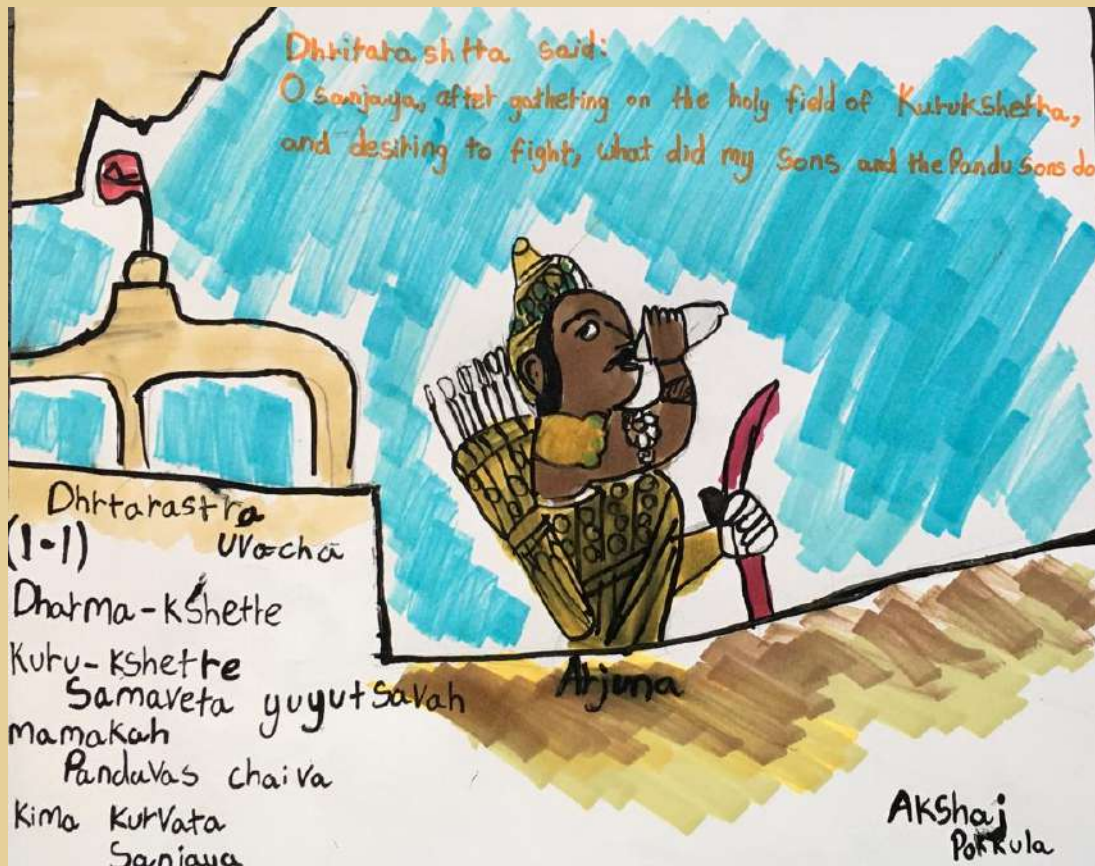 Dhritarashtra said:
O sanjaya, after gathering on the holy field of Kurukshetra,
and desiring to fight, what did my Sons and the Pandu Sons do
Dhrtarastra
(1-1) Uvacha
Dharma-Kshetre
Kuru-Kshetre
Samaveta yuyutsavah
Mamakah
Pandavas chaiva
Kima Kurvata
Sanjaya
Arjuna
Akshaj
Pokkula